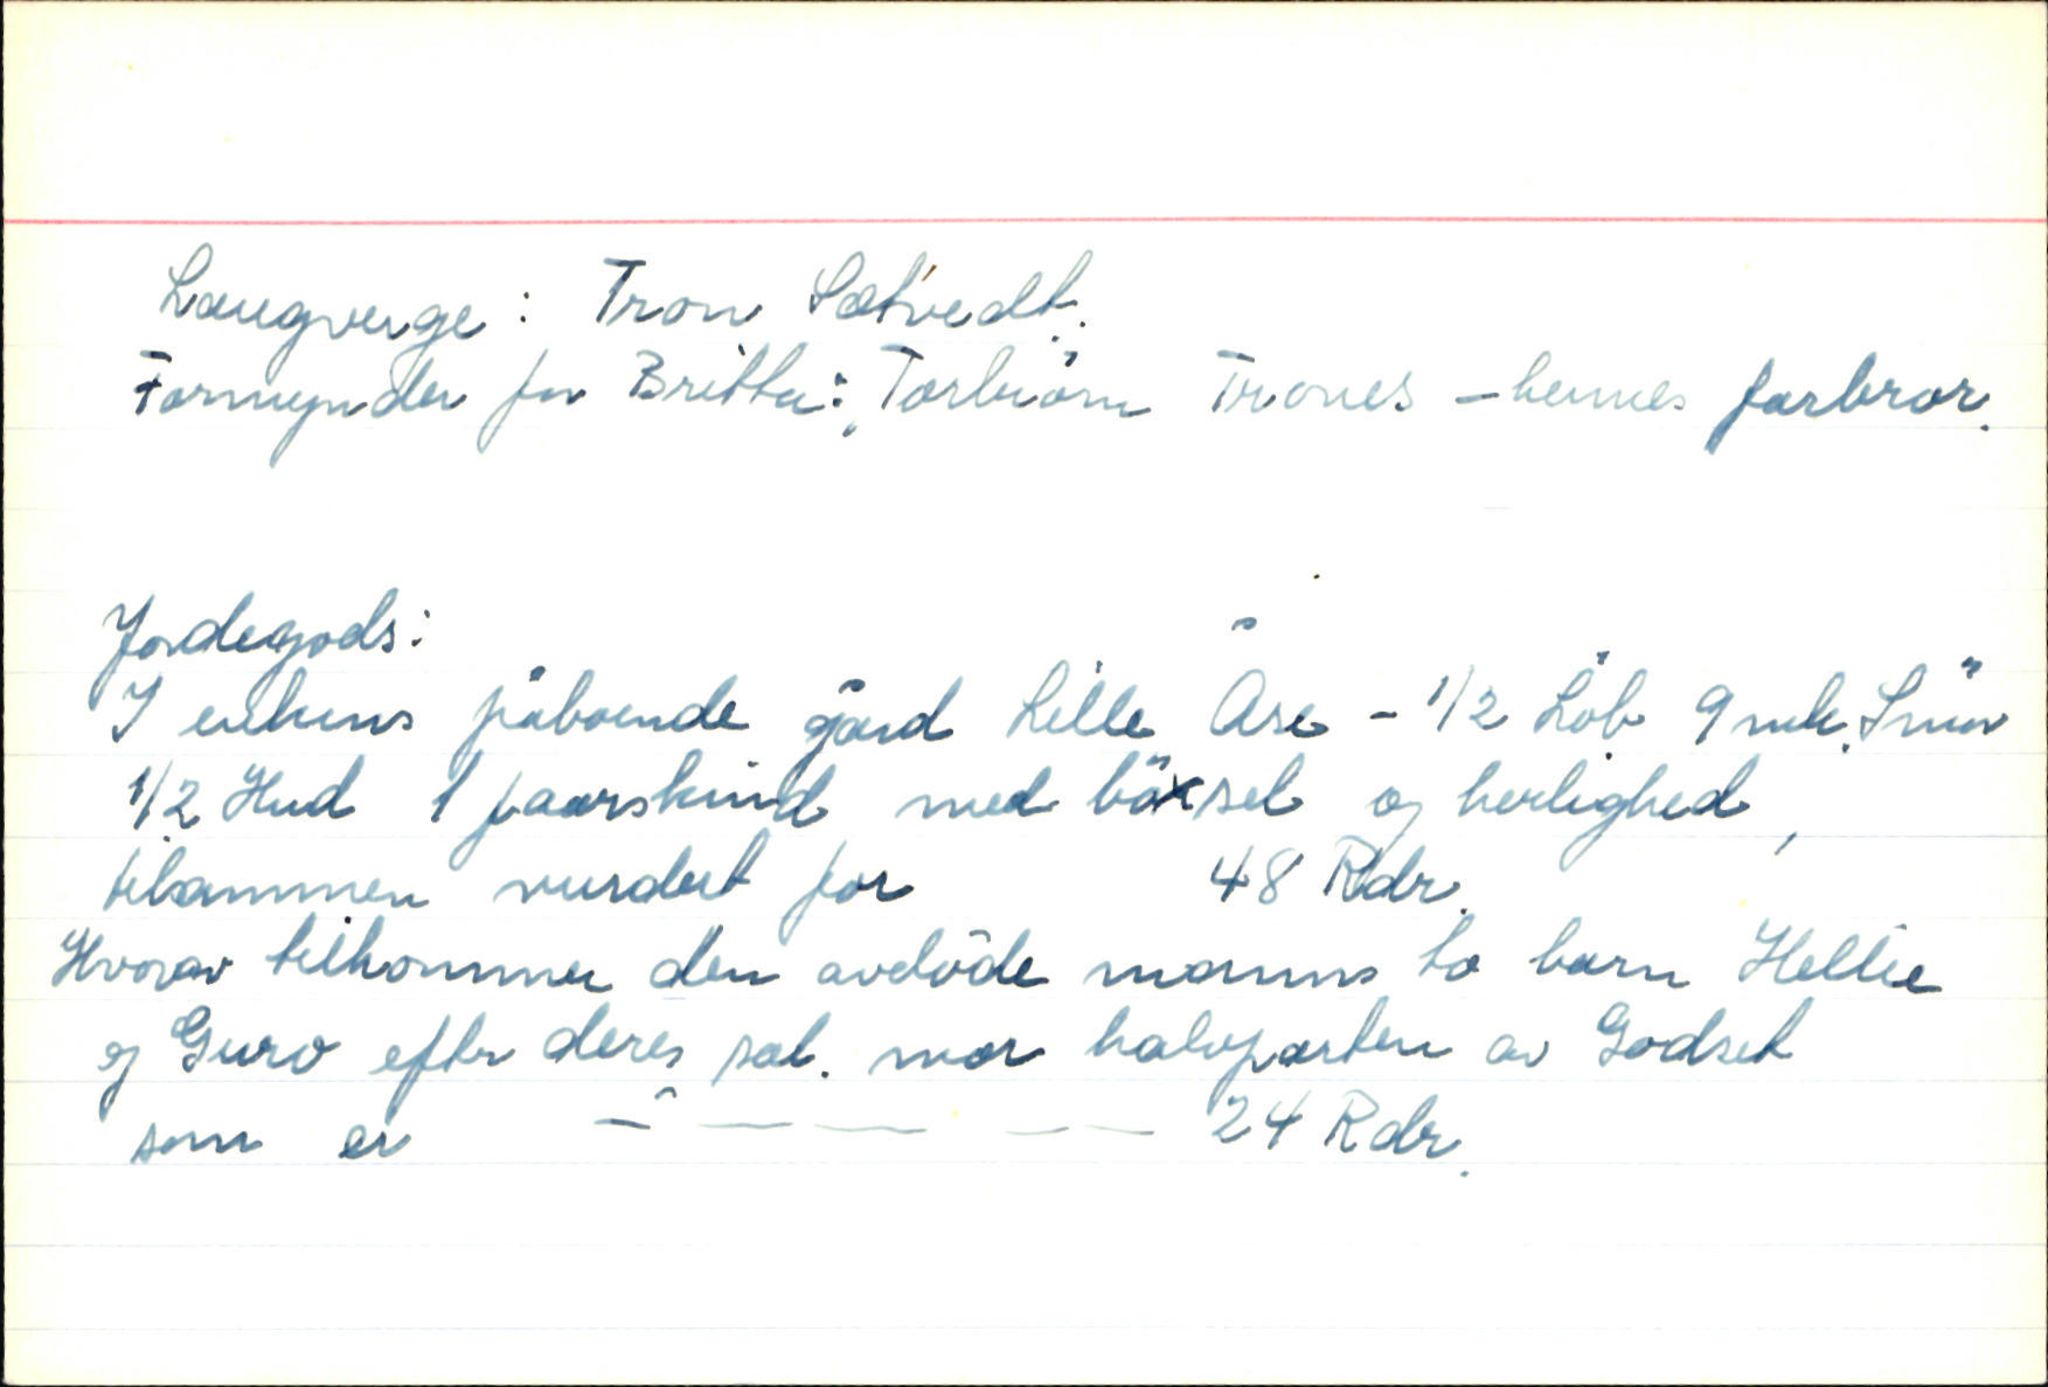 Laugverge: Tron Sætvedt.
Formynder for Britta: Torbiörn Trones - hennes farbror.
Jordegods:
I enkens påboende gård Lille Åse - 1/2 Löb 9 mk. Smör
1/2 Hud 1 faarskind med böxsel og herlighed,
tilsammen vurdert for 48 Rdr.
Hvorav tilkommer den avdöde manns to barn Hellie
og Guro efter deres sal. mor halvparten av Godset
som er - " - - - - 24 Rdr.